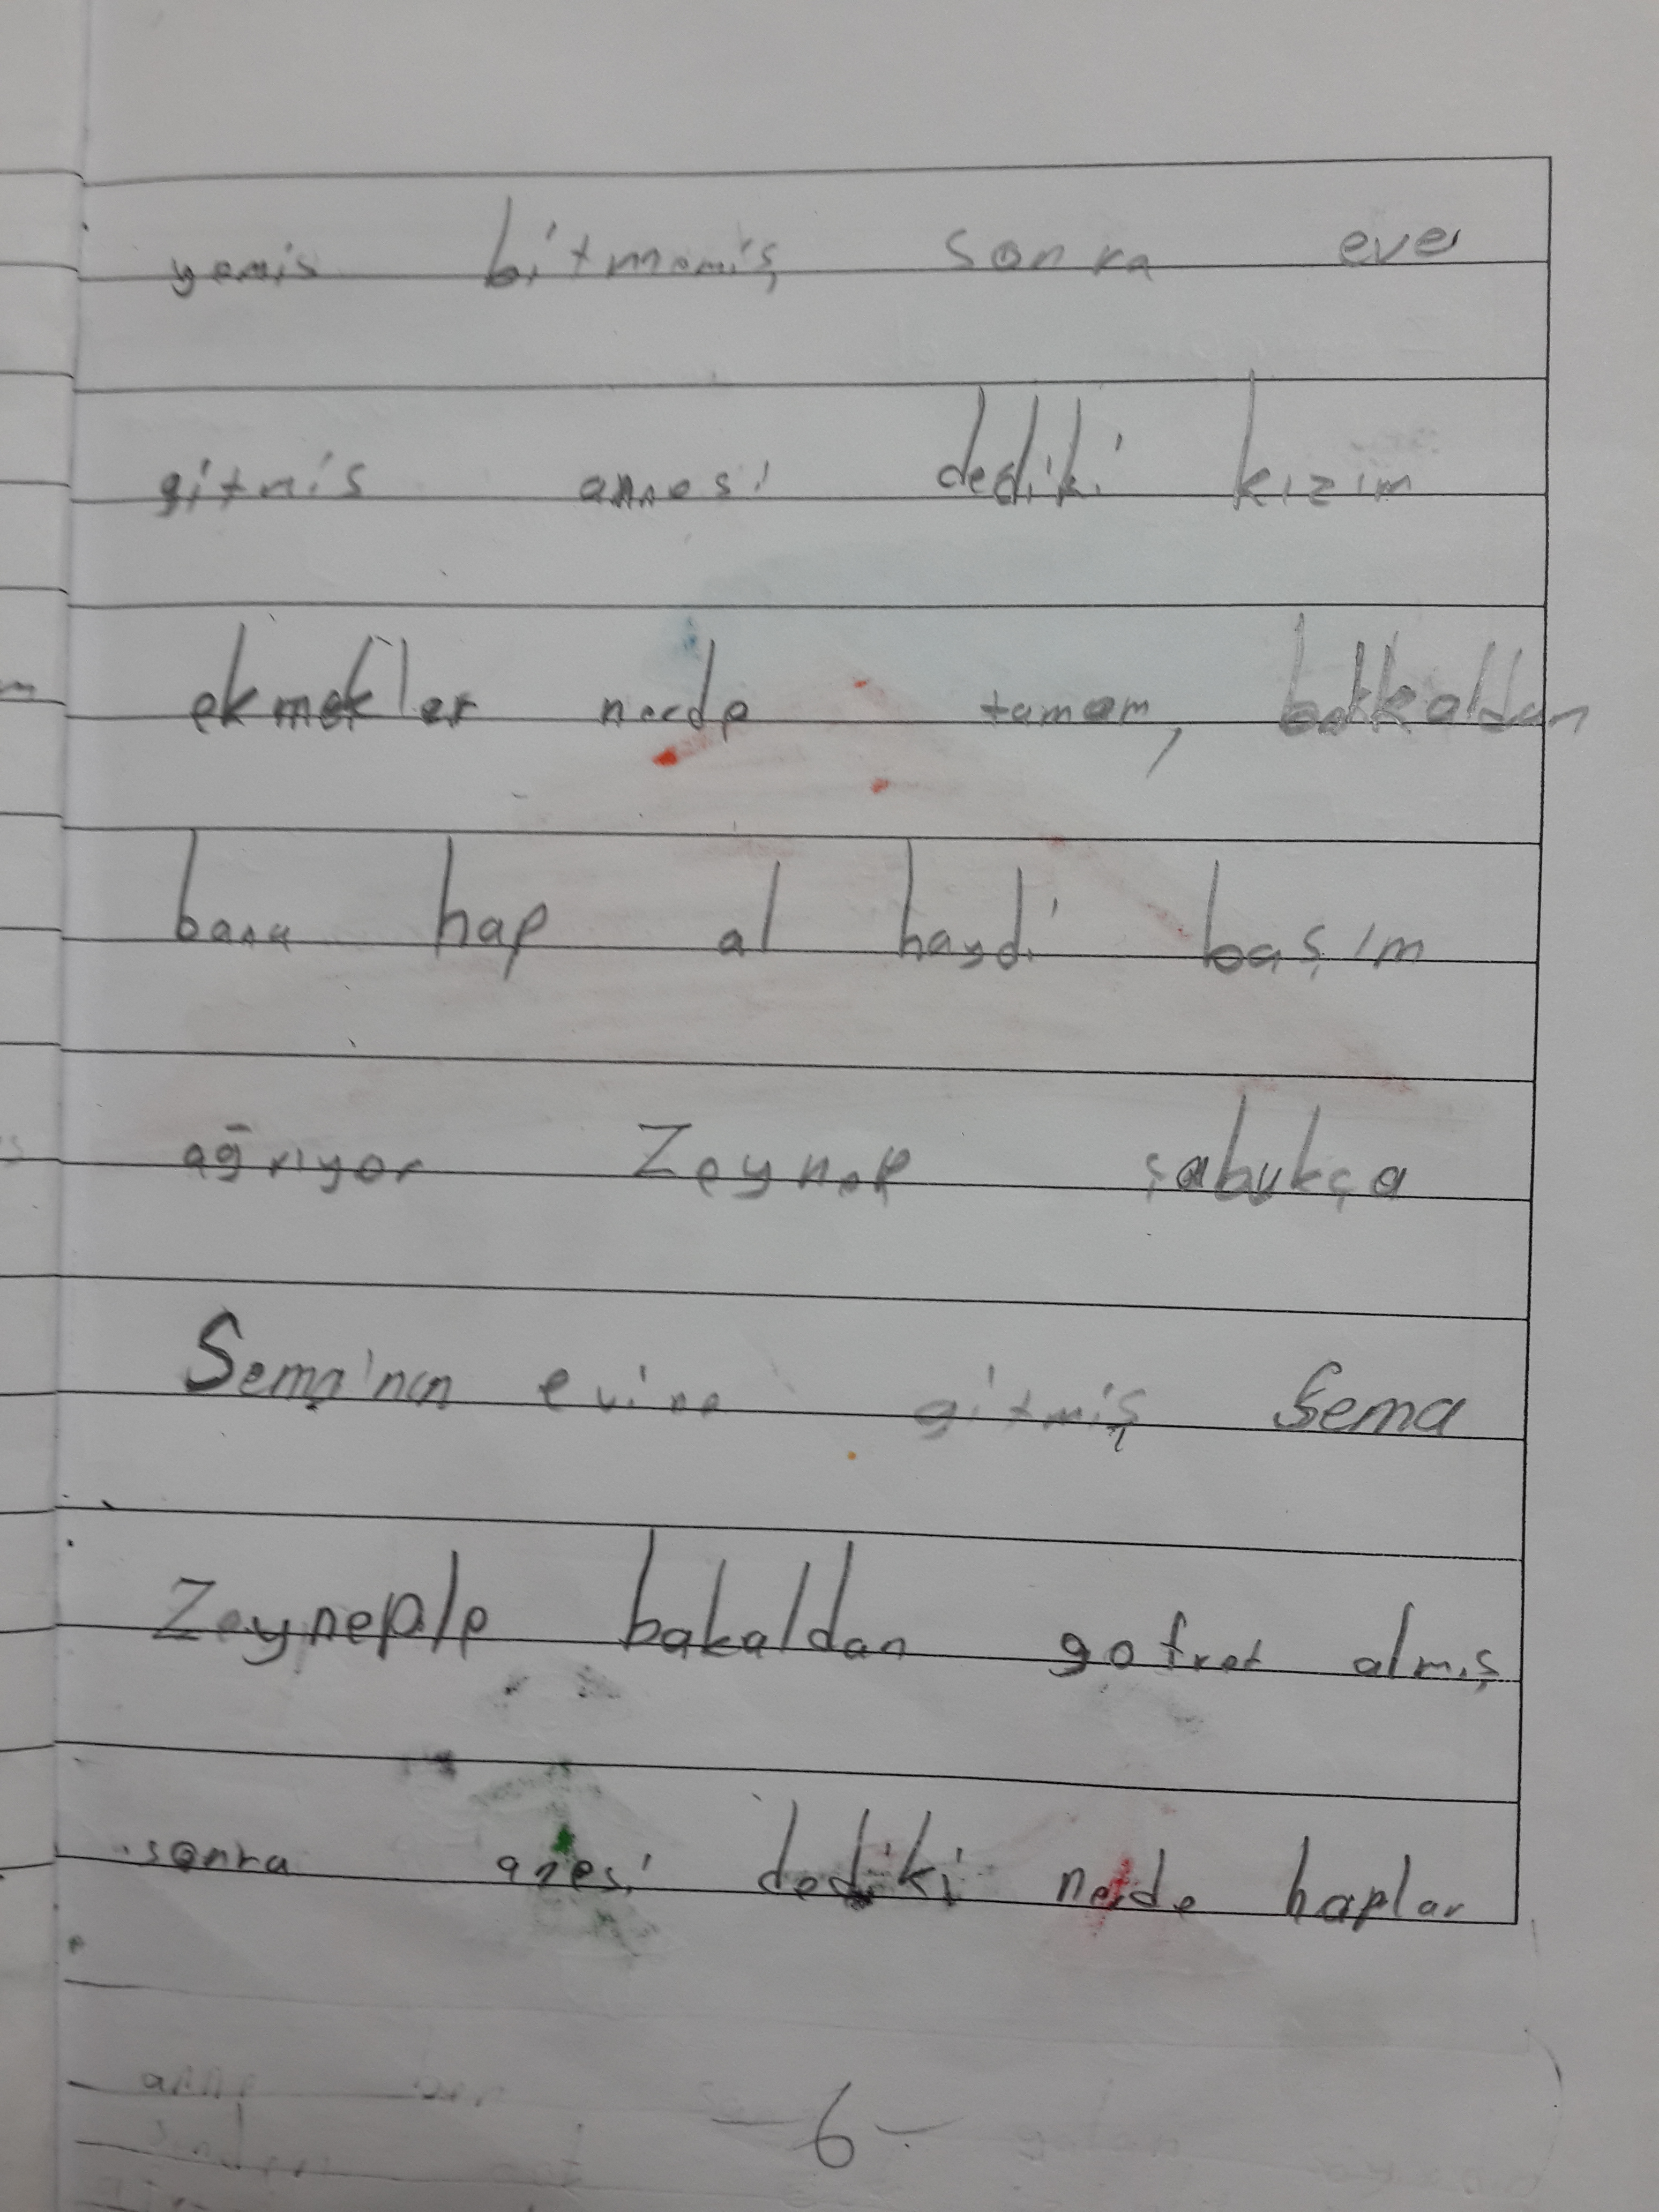 yemis bitmemiş sonra eve
gitmis annesi dediki kızım
ekmekler nerde tamam, bakkaldan
bana hap al haydi başım
ağrıyor Zeynep şabukça
Sema'nın evine gitmiş Sema
Zeyneple bakaldan gofret almış
sonra anesi dediki nerde haplar
-6-